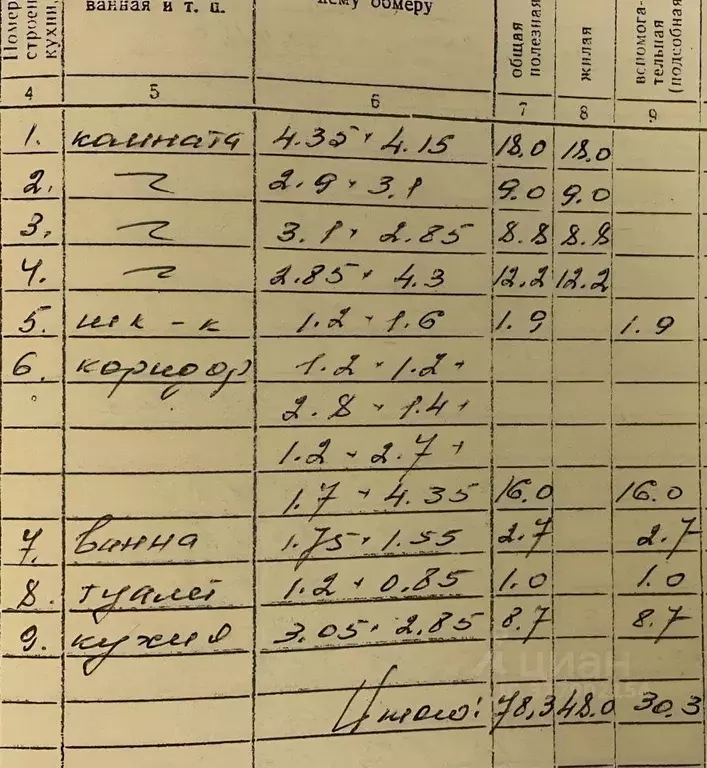 Номер строен кухни,
ванная и т. п.
нему обмеру
общая полезная
жилая
вспомога- тельная (подсобная
4 5 6 7 8 9
1. комната 4.35 × 4.15 18.0 18.0
2. ~ 2.9 × 3.1 9.0 9.0
3. ~ 3.1 × 2.85 8.8 8.8
4. ~ 2.85 × 4.3 12.2 12.2
5. шк - к 1.2 × 1.6 1.9 1.9
6. коридор 1.2 × 1.2 +
2.8 × 1.4 +
1.2 × 2.7 +
1.7 × 4.35 16.0 16.0
7. ванна 1.75 × 1.55 2.7 2.7
8. туалет 1.2 × 0.85 1.0 1.0
9. кухня 3.05 × 2.85 8.7 8.7
циан
Итого: 78,3 48.0 30.3